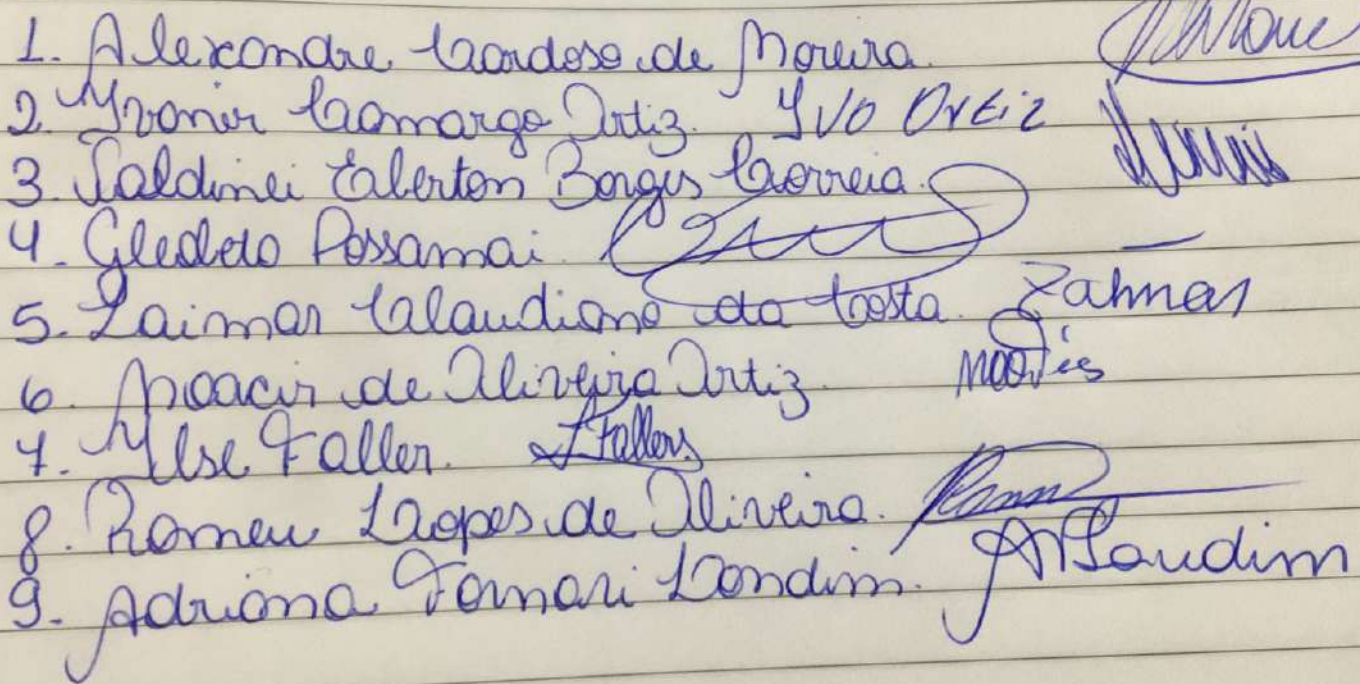 1. Alexandre Cardoso de Moreira.
2. Yvonir Camargo Ortiz. Ivo Ortiz
3. Valdinei Elberton Borges Correia.
4. Possamai.
5. Laimar Claudiano da Costa.
6. Moacir de Oliveira Ortiz.
7. Ylse Faller. IFallers
8. Romeu Lopes de Oliveira.
9. Adriana Fornari Londim.